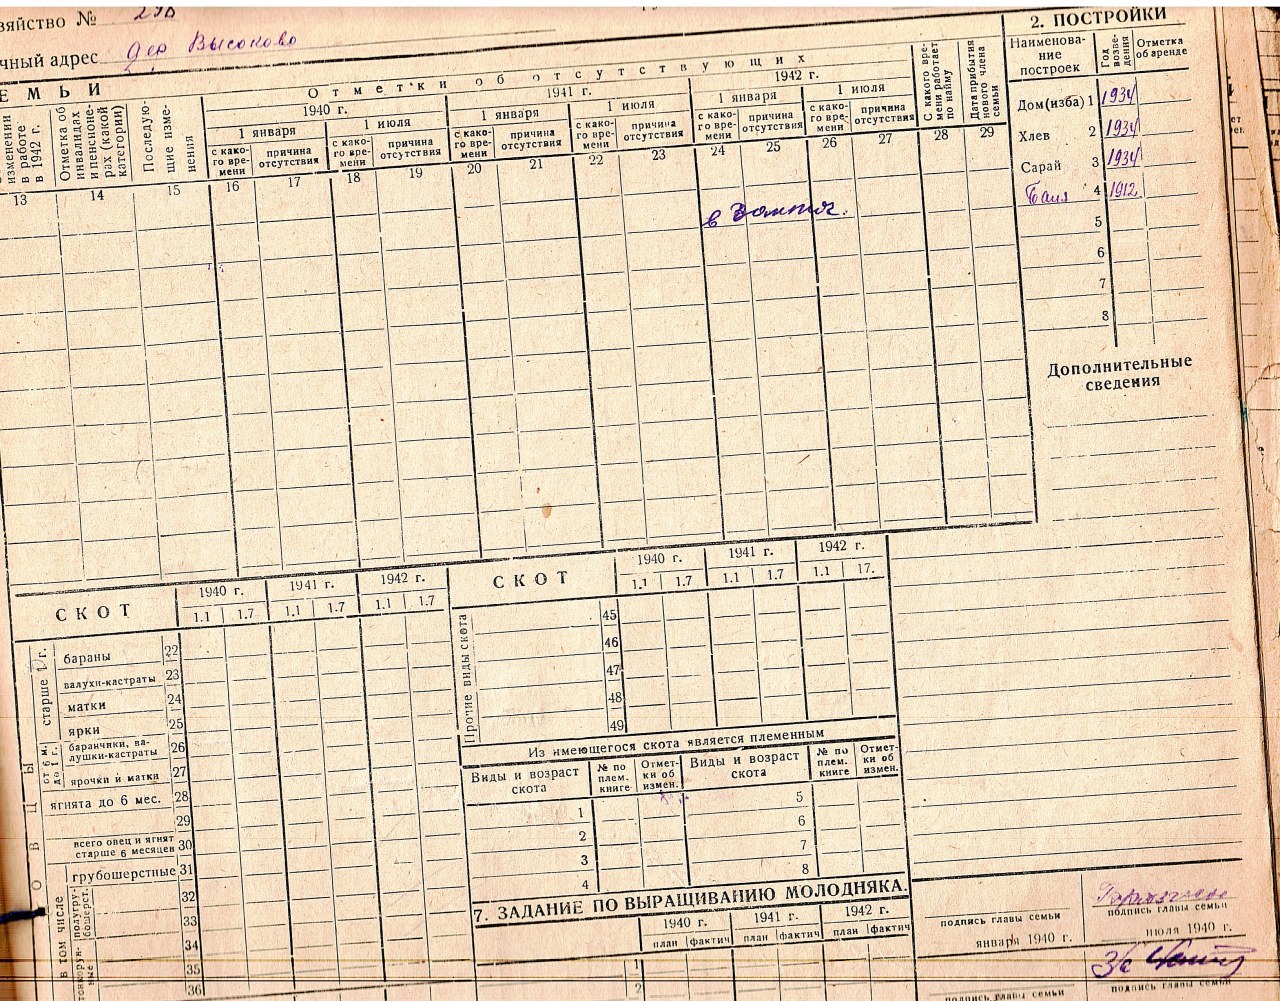 зяйство №
чный адрес дер Высоково
ЕМЬИ
Отметки об отсутствующих
2. ПОСТРОЙКИ
изменении в работе в 1942 г.
Отметка об инвалидах и пенсионерах (какой категории)
Последующие изменения
1940 г.
1941 г.
1942 г.
1 января
1 июля
1 января
1 июля
1 января
1 июля
с какого времени
причина отсутствия
с какого времени
причина отсутствия
с какого времени
причина отсутствия
с какого времени
причина отсутствия
с какого времени
причина отсутствия
с какого времени
причина отсутствия
С какого времени работает по найму
Дата прибытия нового члена семьи
13 14 15 16 17 18 19 20 21 22 23 24 25 26 27 28 29
Наименование построек
Год возведения
Отметка об аренде
Дом (изба) 1 1934
Хлев 2 1934
Сарай 3 1934
Баня 4 1912
5
6
7
8
Дополнительные
сведения
СКОТ
1940 г. 1941 г. 1942 г.
1.1 1.7 1.1 1.7 1.1 1.7
ОВЦЫ
старше 1 г.
бараны 22
валухи-кастраты 23
матки 24
ярки 25
от 6 м. до 1 г.
баранчики, валушки-кастраты 26
ярочки и матки 27
ягнята до 6 мес. 28
29
всего овец и ягнят старше 6 месяцев 30
в том числе
грубошерстные 31
полугрубошерст.
32
33
34
тонкорунные
35
36
СКОТ
1940 г. 1941 г. 1942 г.
1.1 1.7 1.1 1.7 1.1 17.
Прочие виды скота
45
46
47
48
49
Из имеющегося скота является племенным
Виды и возраст скота
№ по плем. книге
Отметки об измен.
Виды и возраст скота
№ по плем. книге
Отметки об измен.
1 5
2 6
3 7
4 8
7. ЗАДАНИЕ ПО ВЫРАЩИВАНИЮ МОЛОДНЯКА.
1940 г. 1941 г. 1942 г.
план фактич план фактич план фактич
1
2
подпись главы семьи
января 1940 г.
подпись главы семьи
июля 1940 г.
подпись главы семьи
подпись главы семьи